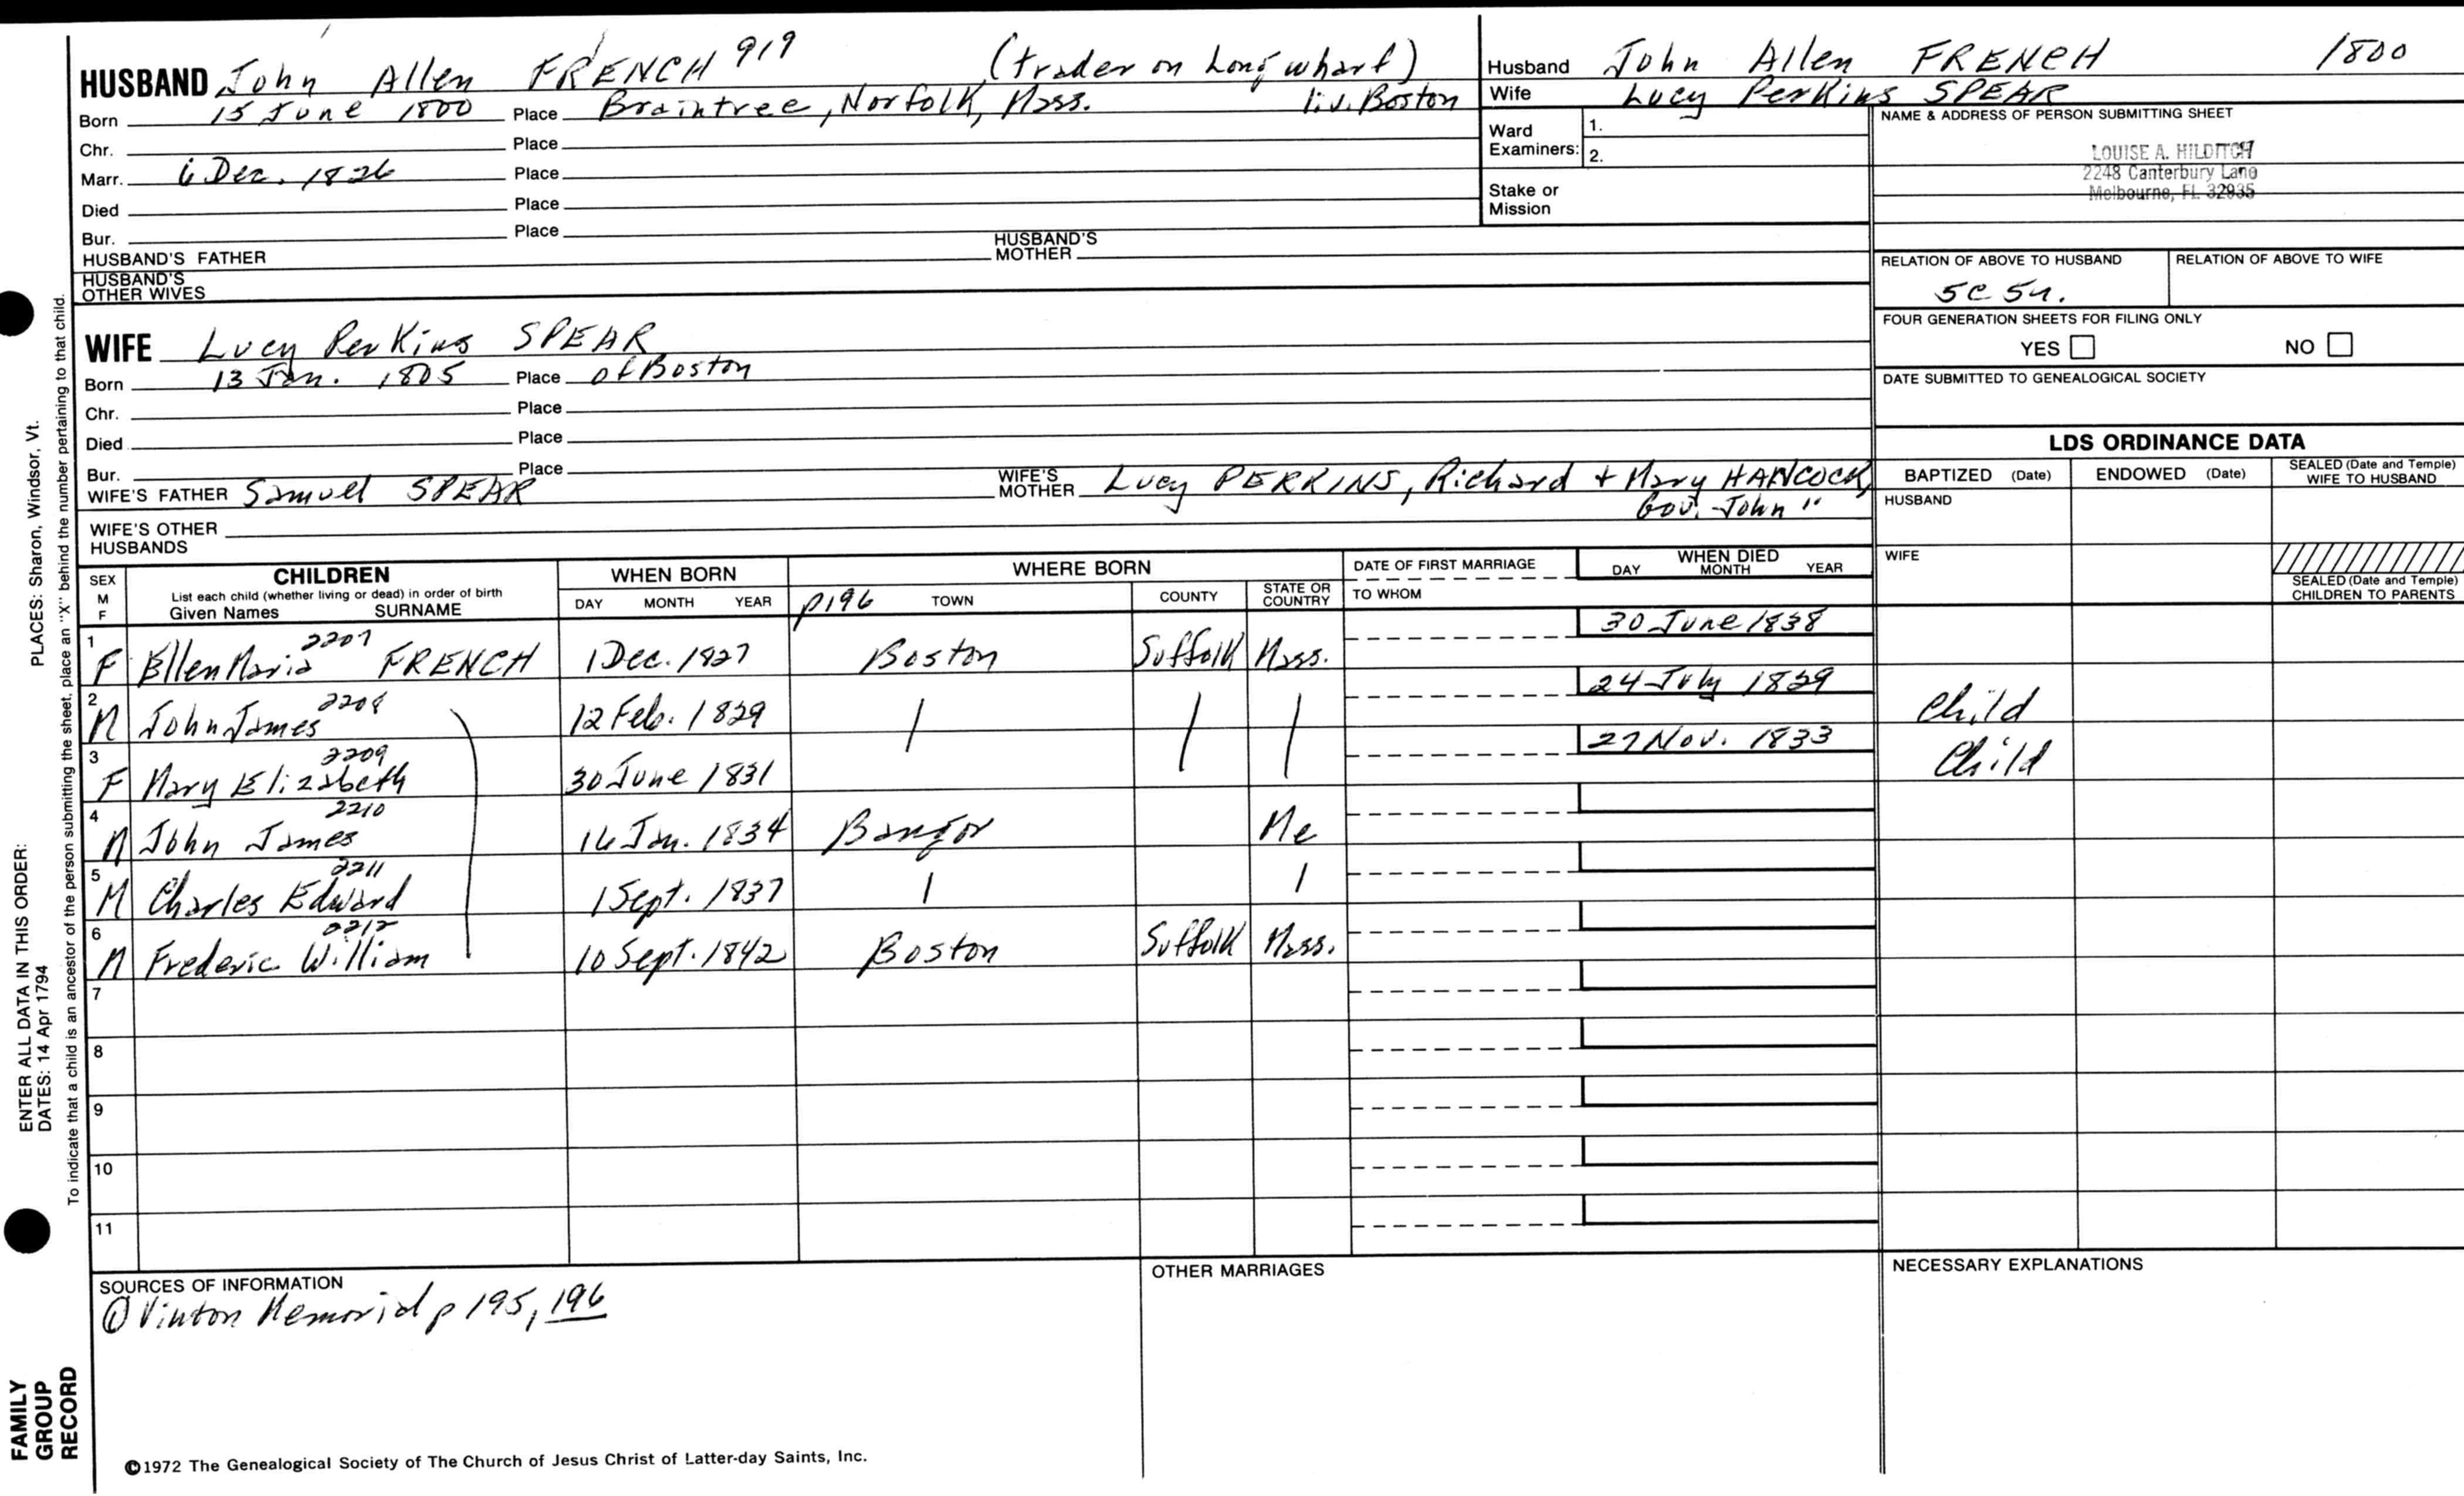 HUSBAND John Allen FRENCH 919 (trader on Long wharf)
Born 15 June 1800 Place Braintree, Norfolk, Mass. liv. Boston
Chr. Place
Marr. 6 Dec. 1826 Place
Died Place
Bur. Place
HUSBAND'S FATHER HUSBAND'S MOTHER
HUSBAND'S OTHER WIVES
WIFE Lucy Perkins SPEAR
Born 13 Jan. 1805 Place of Boston
Chr. Place
Died Place
Bur. Place
WIFE'S FATHER Samuel SPEAR WIFE'S MOTHER Lucy PERKINS, Richard + Mary HANCOCK,
Gov. John "
WIFE'S OTHER HUSBANDS
Husband John Allen FRENCH 1800
Wife Lucy Perkins SPEAR
Ward Examiners: 1.
2.
Stake or Mission
NAME & ADDRESS OF PERSON SUBMITTING SHEET
LOUISE A. HILDITCH
2248 Canterbury Lane
Melbourne, FL 32935
RELATION OF ABOVE TO HUSBAND RELATION OF ABOVE TO WIFE
5C 5r.
FOUR GENERATION SHEETS FOR FILING ONLY
YES NO
DATE SUBMITTED TO GENEALOGICAL SOCIETY
LDS ORDINANCE DATA
BAPTIZED (Date) ENDOWED (Date) SEALED (Date and Temple) WIFE TO HUSBAND
HUSBAND
WIFE
SEALED (Date and Temple) CHILDREN TO PARENTS
SEX M F CHILDREN WHEN BORN WHERE BORN DATE OF FIRST MARRIAGE WHEN DIED
List each child (whether living or dead) in order of birth
Given Names SURNAME DAY MONTH YEAR p196 TOWN COUNTY STATE OR COUNTRY TO WHOM DAY MONTH YEAR
1 F Ellen Maria 2207 FRENCH 1 Dec. 1827 Boston Suffolk Mass. 30 June 1838
2 M John James 2208 12 Feb. 1829 | | | 24 July 1829 Child
3 F Mary Elizabeth 2209 30 June 1831 27 Nov. 1833 Child
4 M John James 2210 16 Jan. 1834 Bangor Me
5 M Charles Edward 2211 1 Sept. 1837 | |
6 M Frederic William 2212 10 Sept. 1842 Boston Suffolk Mass.
7
8
9
10
11
SOURCES OF INFORMATION
① Vinton Memorial p 195, 196
OTHER MARRIAGES
NECESSARY EXPLANATIONS
©1972 The Genealogical Society of The Church of Jesus Christ of Latter-day Saints, Inc.
FAMILY GROUP RECORD
ENTER ALL DATA IN THIS ORDER:
DATES: 14 Apr 1794
PLACES: Sharon, Windsor, Vt.
To indicate that a child is an ancestor of the person submitting the sheet, place an "X" behind the number pertaining to that child.